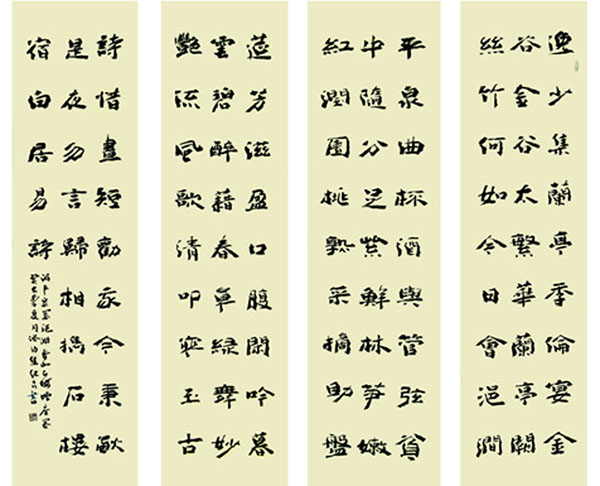 逸少集蘭亭季倫宴金
谷金谷太繁華蘭亭闕
絲竹何如今日會浥澗
平泉曲杯酒與管弦貧
中隨分足紫鮮林笋嫩
紅潤園桃熟采摘助盤
筵芳滋盈口腹閑吟暮
雲碧醉藉春草綠舞妙
艷流風歌清叩寒玉古
詩惜晝短勸我令秉燭
是夜勿言歸相攜石樓
宿白居易詩